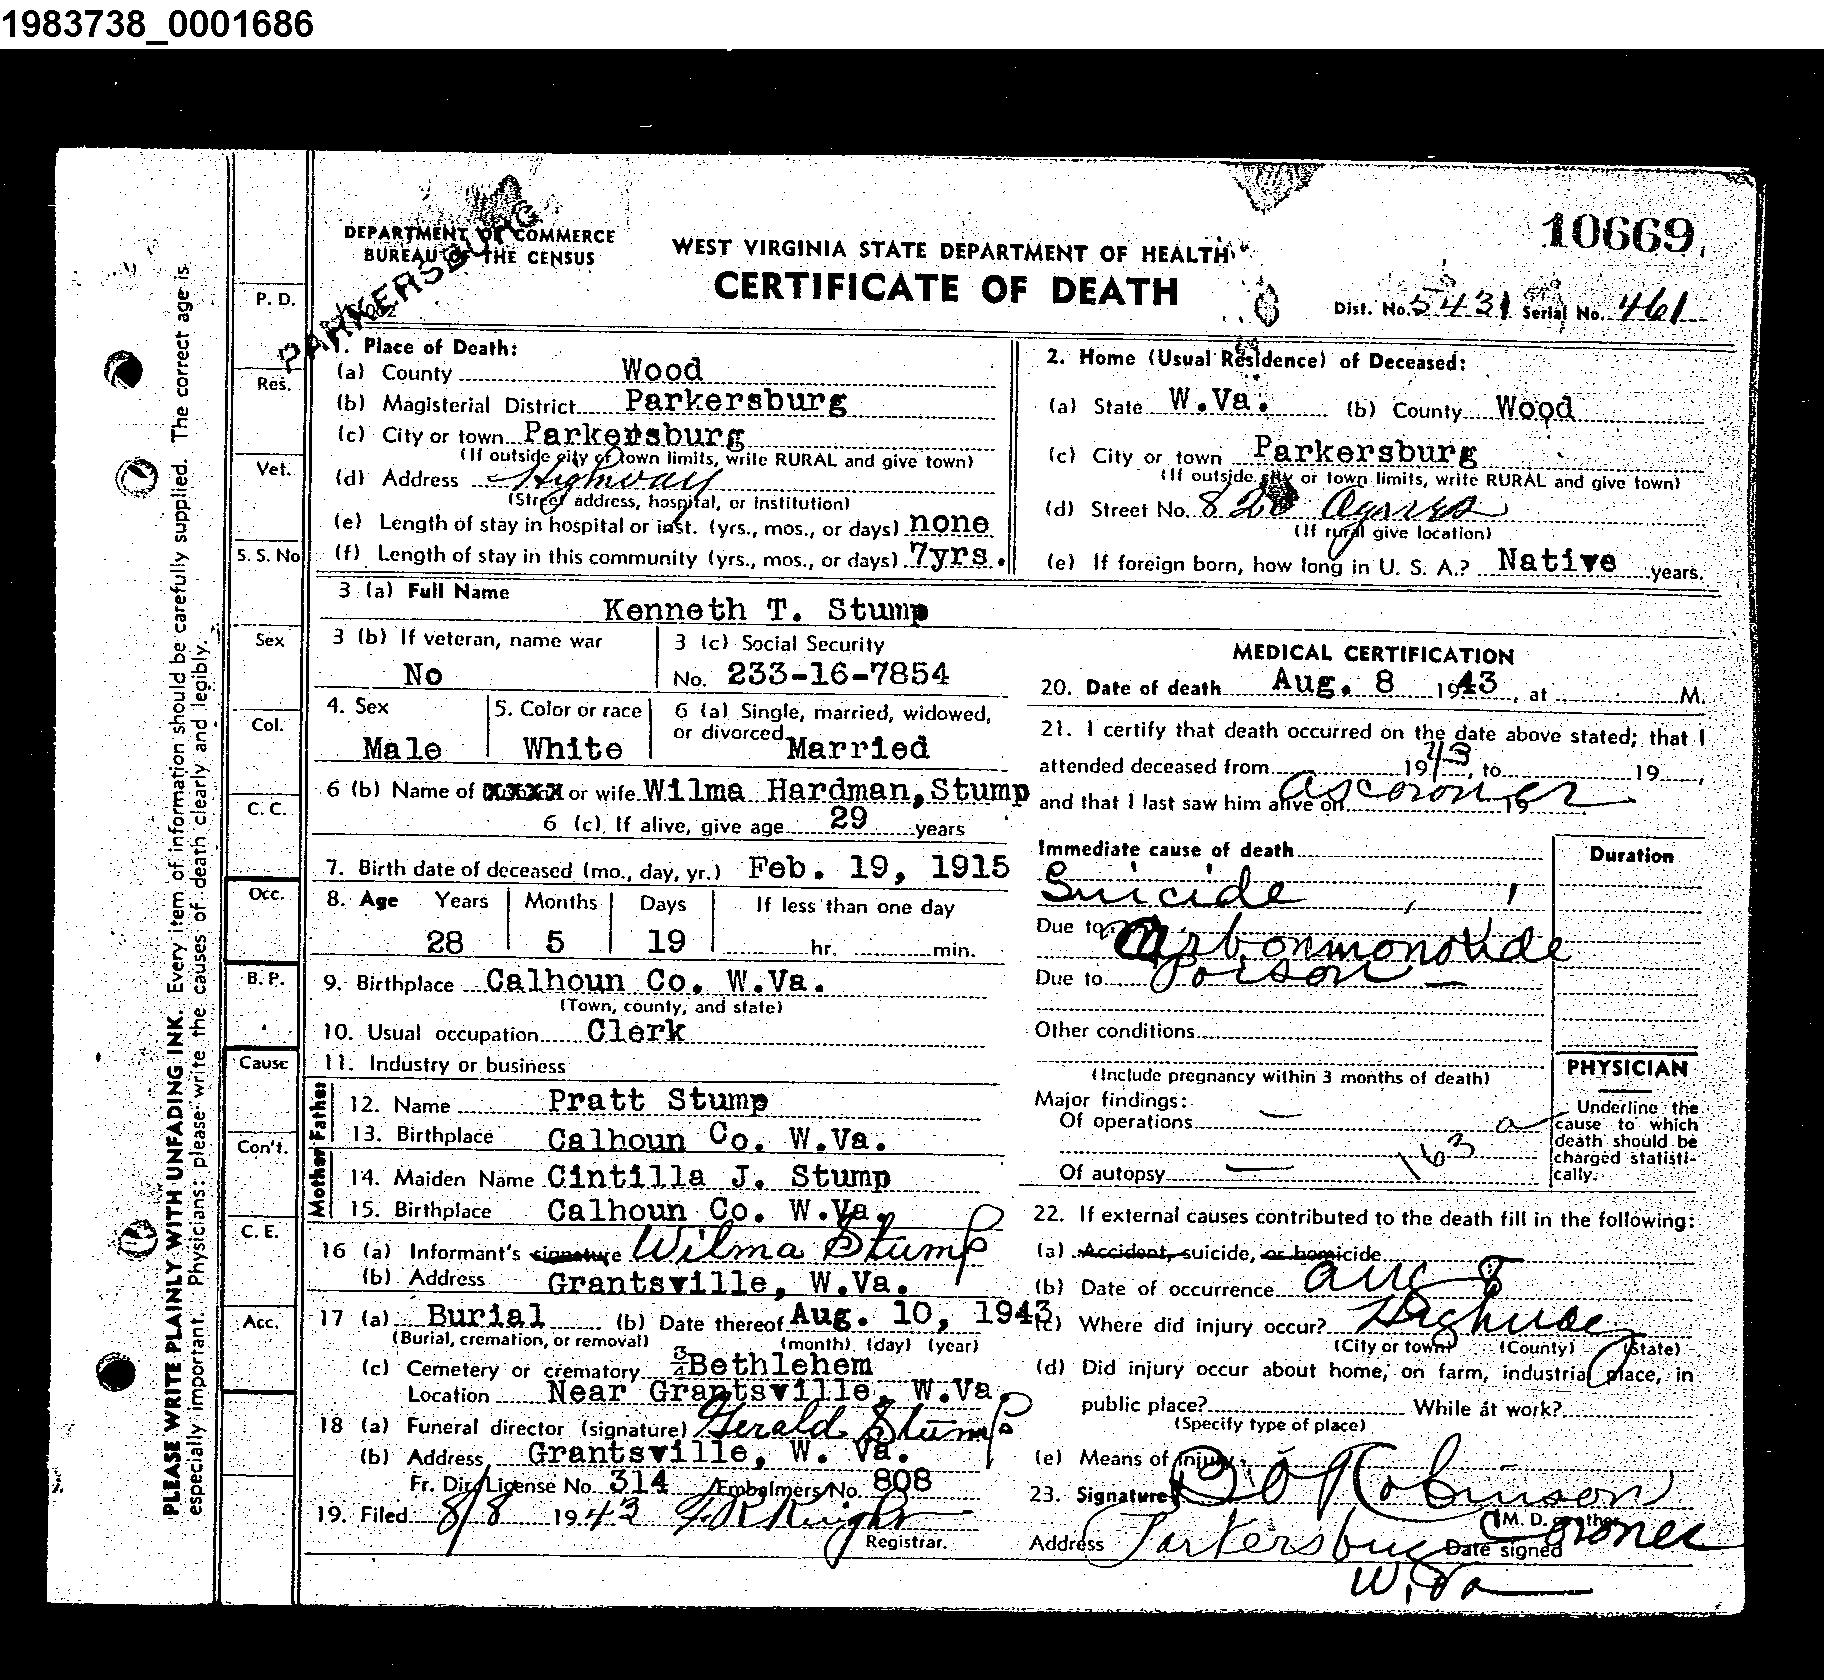 1983738_0001686
10669
DEPARTMENT OF COMMERCE
BUREAU OF THE CENSUS
PARKERSBURG
WEST VIRGINIA STATE DEPARTMENT OF HEALTH
CERTIFICATE OF DEATH
Dist. No. 5431 Serial No. 461
1. Place of Death:
(a) County Wood
(b) Magisterial District Parkersburg
(c) City or town Parkersburg
(If outside city or town limits, write RURAL and give town)
(d) Address Highway
(Street address, hospital, or institution)
(e) Length of stay in hospital or inst. (yrs., mos., or days) none
(f) Length of stay in this community (yrs., mos., or days) 7yrs.
2. Home (Usual Residence) of Deceased:
(a) State W.Va. (b) County Wood
(c) City or town Parkersburg
(If outside city or town limits, write RURAL and give town)
(d) Street No. 820
(If rural give location)
(e) If foreign born, how long in U. S. A.? Native years.
3 (a) Full Name
Kenneth T. Stump
3 (b) If veteran, name war
No
3 (c) Social Security
No. 233-16-7854
4. Sex
Male
5. Color or race
White
6 (a) Single, married, widowed,
or divorced Married
6 (b) Name of xxxx or wife Wilma Hardman, Stump
6 (c) If alive, give age 29 years
7. Birth date of deceased (mo., day, yr.) Feb. 19, 1915
8. Age Years Months Days If less than one day
28 5 19 hr. min.
9. Birthplace Calhoun Co. W.Va.
(Town, county, and state)
10. Usual occupation Clerk
11. Industry or business
Father
12. Name Pratt Stump
13. Birthplace Calhoun Co. W.Va.
Mother
14. Maiden Name Cintilla J. Stump
15. Birthplace Calhoun Co. W.Va.
16 (a) Informant's signature Wilma Stump
(b) Address Grantsville, W.Va.
17 (a) Burial (b) Date thereof Aug. 10, 1943
(Burial, cremation, or removal) (month) (day) (year)
(c) Cemetery or crematory Bethlehem
Location Near Grantsville, W.Va.
18 (a) Funeral director (signature) Gerald Stump
(b) Address Grantsville, W. Va.
Fr. Dir. License No. 314 Embalmers No. 808
19. Filed 8/8 1943 Knight
Registrar.
MEDICAL CERTIFICATION
20. Date of death Aug. 8 1943, at M.
21. I certify that death occurred on the date above stated; that I
attended deceased from 1943, to 19 ,
and that I last saw him alive on as coroner 19
Immediate cause of death
Suicide
Due to Carbonmonoxide
Due to Poison —
Other conditions
(Include pregnancy within 3 months of death)
Major findings:
Of operations —
Of autopsy —
163
a
Duration
PHYSICIAN
Underline the
cause to which
death should be
charged statisti-
cally.
22. If external causes contributed to the death fill in the following:
(a) Accident, suicide, or homicide
(b) Date of occurrence Aug 8
(c) Where did injury occur? Highway
(City or town) (County) (State)
(d) Did injury occur about home, on farm, industrial place, in
public place? While at work?
(Specify type of place)
(e) Means of injury
23. Signature B O Robinson
(M. D. or other) Coroner
Address Parkersburg Date signed
W. Va
P. D.
Res.
Vet.
S. S. No
Sex
Col.
C. C.
Occ.
B. P.
Cause
Con't.
C. E.
Acc.
PLEASE WRITE PLAINLY WITH UNFADING INK. Every item of information should be carefully supplied. The correct age is
especially important. Physicians: please write the causes of death clearly and legibly.